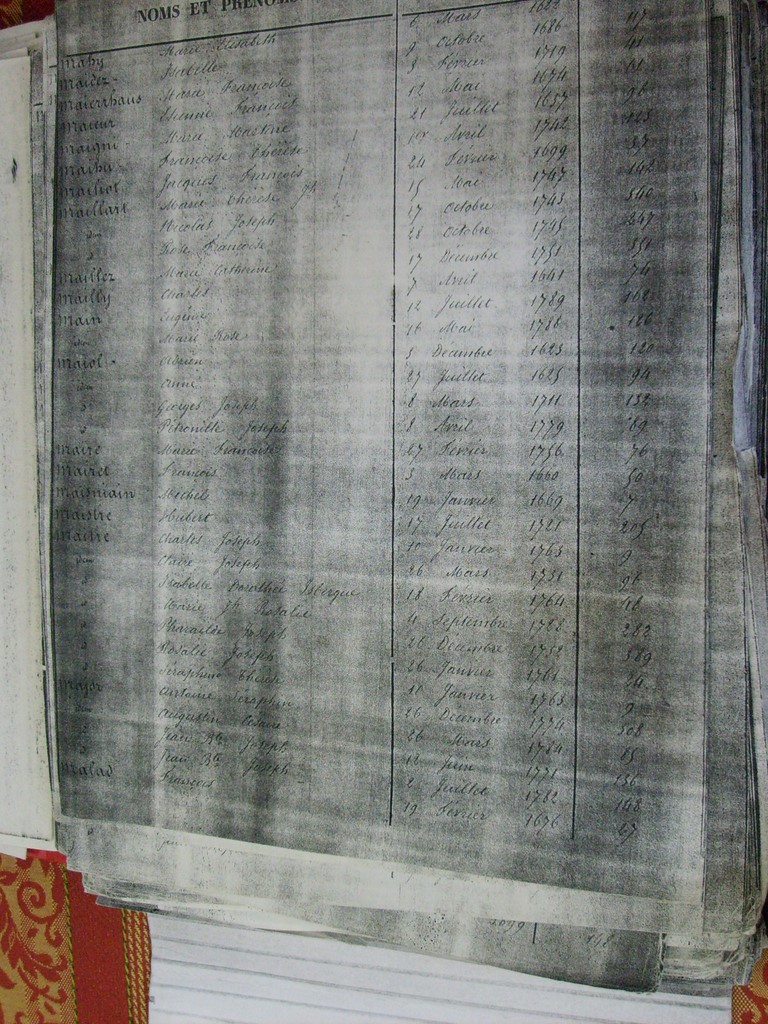 NOMS ET PRÉNOMS
Mahy Marie Elisabeth 6 Mars 1682 117
Maicez Isabelle 9 Octobre 1686 41
Maierrhaus Marie Françoise 5 Février 1719 61
Maieur Etienne François 12 Mai 1674 96
Maigni Marie Martine 21 Juillet 1657
Maihy Françoise Thérèse 1er Avril 1742 37
Mailiot Jacques François 24 Février 1699 142
Maillart Marie Thérèse Jh 15 Mai 1747 540
idem Nicolas Joseph 17 Octobre 1743 247
d° Rose Françoise 28 Octobre 1745 351
Maillez Marie Catherine 17 Décembre 1751 74
Mailly Charles 7 Avril 1641 162
Main Eugénie 12 Juillet 1789 126
idem Marie Rose 16 Mai 1786 120
Maiol Adrien 5 Décembre 1623 94
idem Anne 27 Juillet 1625 132
d° Georges Joseph 8 Mars 1711 69
d° Pétronille Joseph 8 Avril 1779 76
Maire Marie Françoise 27 Février 1756 50
Mairet François 3 Mars 1660 7
Maismain Michele 19 Janvier 1669 205
Maistre Hubert 17 Juillet 1721 9
Maitre Charles Joseph 10 Janvier 1763 96
idem Claire Joseph 26 Mars 1731 48
d° Isabelle Dorothée Isbergue 18 Février 1764 282
d° Marie Jh Rosalie 4 Septembre 1728 389
d° Pharailde Joseph 26 Décembre 1758 24
d° Rosalie Joseph 26 Janvier 1761 9
d° Séraphine Thérèse 11 Janvier 1763 308
Major Antoine Séraphin 26 Décembre 1774 15
idem Augustin Césaire 26 Mars 1784 156
d° Jean Bte Joseph 12 Juin 1771 148
d° Jean Bte Joseph 2 Juillet 1782 67
Malad François 19 Février 1676
d°